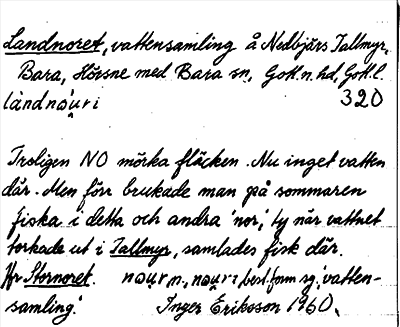 Landnoret, vattensamling å Nedbjärs Tallmyr,
Bara, Hörsne med Bara sn, Gotl. n. hd, Gotl. l.
làndnau̯ri 320
Troligen NO mörka fläcken. Nu inget vatten
där. Men förr brukade man på sommaren
fiska i detta och andra 'nor,' ty när vattnet
torkade ut i Tallmyr, samlades fisk där.
Jfr Stornoret. nau̯r n., nau̯ri best. form sg. 'vatten-
samling.' Inger Eriksson 1960.